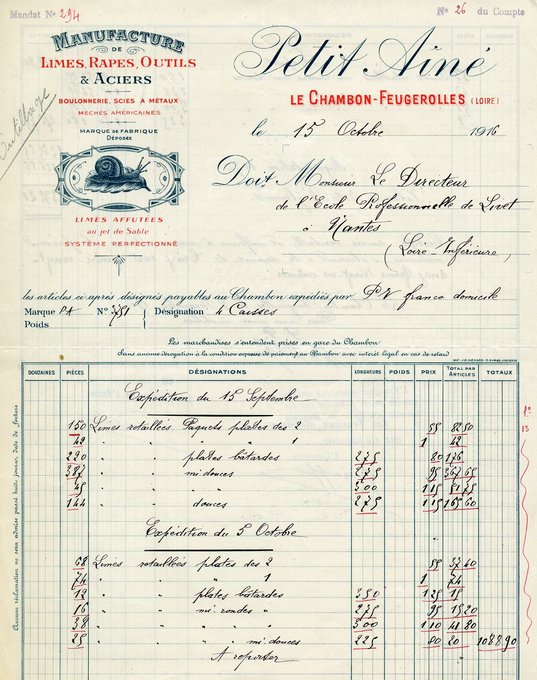 Mandat No 294
No 26 du Compte
MANUFACTURE
DE
LIMES, RAPES, OUTILS
& ACIERS
BOULONNERIE, SCIES A MÉTAUX
MÈCHES AMÉRICAINES
MARQUE DE FABRIQUE
DÉPOSÉE
LIMES AFFUTÉES
au jet de Sable
SYSTÈME PERFECTIONNÉ
Outillage
Petit Aîné
LE CHAMBON-FEUGEROLLES (LOIRE)
le 15 Octobre 1916
Doit Monsieur Le Directeur
de l'Ecole Professionnelle de Livet
à Nantes
(Loire-Inférieure)
les articles ci-après désignés payables au Chambon expédiés par PV franco domicile
Marque PA No 3751 Désignation 4 Caisses
Poids
Les marchandises s'entendent prises en gare du Chambon
Sans aucune dérogation à la condition expresse de paiement au Chambon avec intérêt légal en cas de retard
DOUZAINES PIÈCES DÉSIGNATIONS LONGUEURS POIDS PRIX TOTAL PAR ARTICLES TOTAUX
Aucune réclamation ne sera admise passé huit jours, date de facture
Expédition du 15 Septembre
150 Limes retaillées Paquets plates des 2 55 82 50
42 " " " " 1 1 42
220 " " plates bâtardes 275 80 176
387 " " " mi douces 275 95 367 65
45 " " " " 300 1 15 51 75
144 " " " douces 275 1 15 165 60
Expédition du 5 Octobre
68 Limes retaillées plates des 2 55 37 40
74 " " " " 1 1 74
12 " " plates bâtardes 350 1 25 15
16 " " mi rondes " 275 95 15 20
38 " " " " 300 1 10 41 80
25 " " " mi douces 225 80 20 1088 90
A reporter